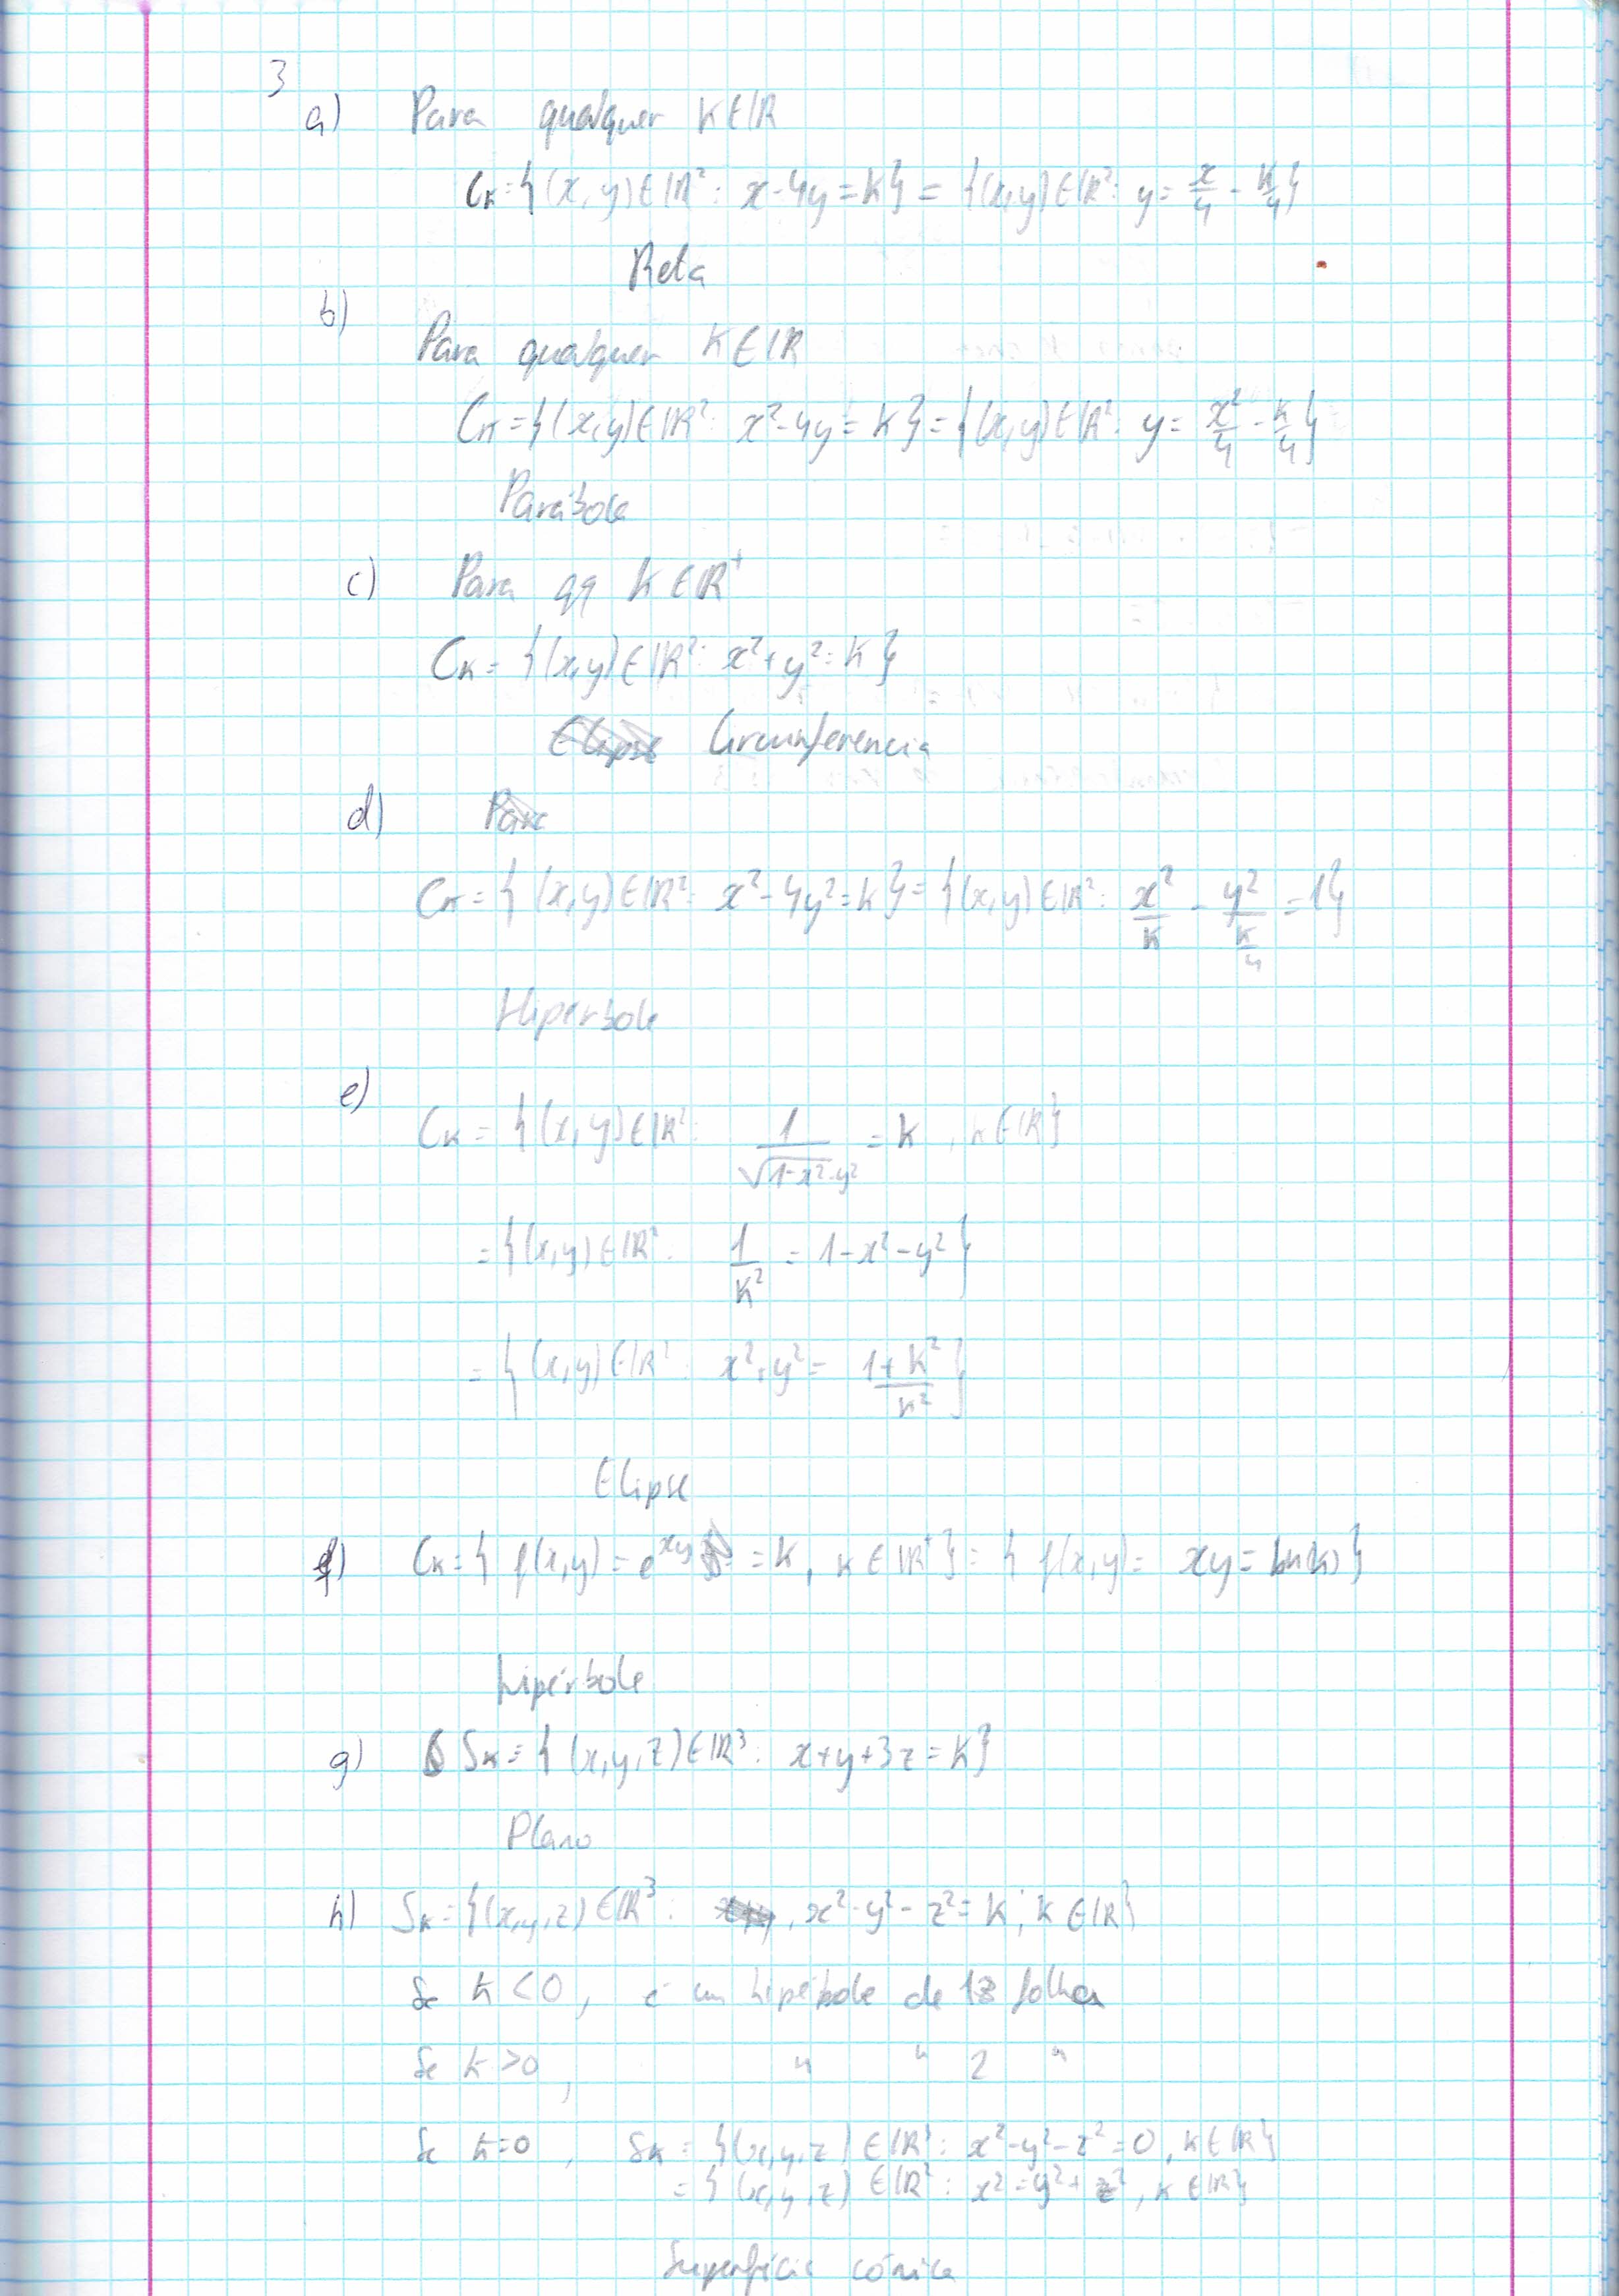 3
a) Para qualquer K∈ℝ
C_K = {(x,y)∈ℝ²: x-4y=K} = {(x,y)∈ℝ²: y = x/4 - K/4}
Reta
b)
Para qualquer K∈ℝ
C_K = {(x,y)∈ℝ²: x²-4y=K} = {(x,y)∈ℝ²: y = x²/4 - K/4}
Parábola
c) Para qq K∈ℝ⁺
C_K = {(x,y)∈ℝ²: x²+y²=K}
Elipse Circunferencia
d) Para
C_K = {(x,y)∈ℝ²: x²-4y²=K} = {(x,y)∈ℝ²: x²/K - y²/(K/4) = 1}
Hipérbole
e)
C_K = {(x,y)∈ℝ²: 1/√(1-x²-y²) = K, K∈ℝ}
= {(x,y)∈ℝ²: 1/K² = 1-x²-y²}
= {(x,y)∈ℝ²: x²+y² = (1+K²)/K²}
Elipse
f) C_K = { f(x,y) = e^xy = K, K∈ℝ⁺} = { f(x,y) = xy = ln(K)}
hipérbole
g) S_K = {(x,y,z)∈ℝ³: x+y+3z=K}
Plano
h) S_K = {(x,y,z)∈ℝ³: , x²-y²-z²=K; K∈ℝ}
Se K<0, é um hipébole de 1 folha
Se K>0, " " 2 "
Se K=0, S_K = {(x,y,z)∈ℝ³: x²-y²-z²=0, K∈ℝ}
= {(x,y,z)∈ℝ²: x²=y²+z², K∈ℝ}
Superfície cónica